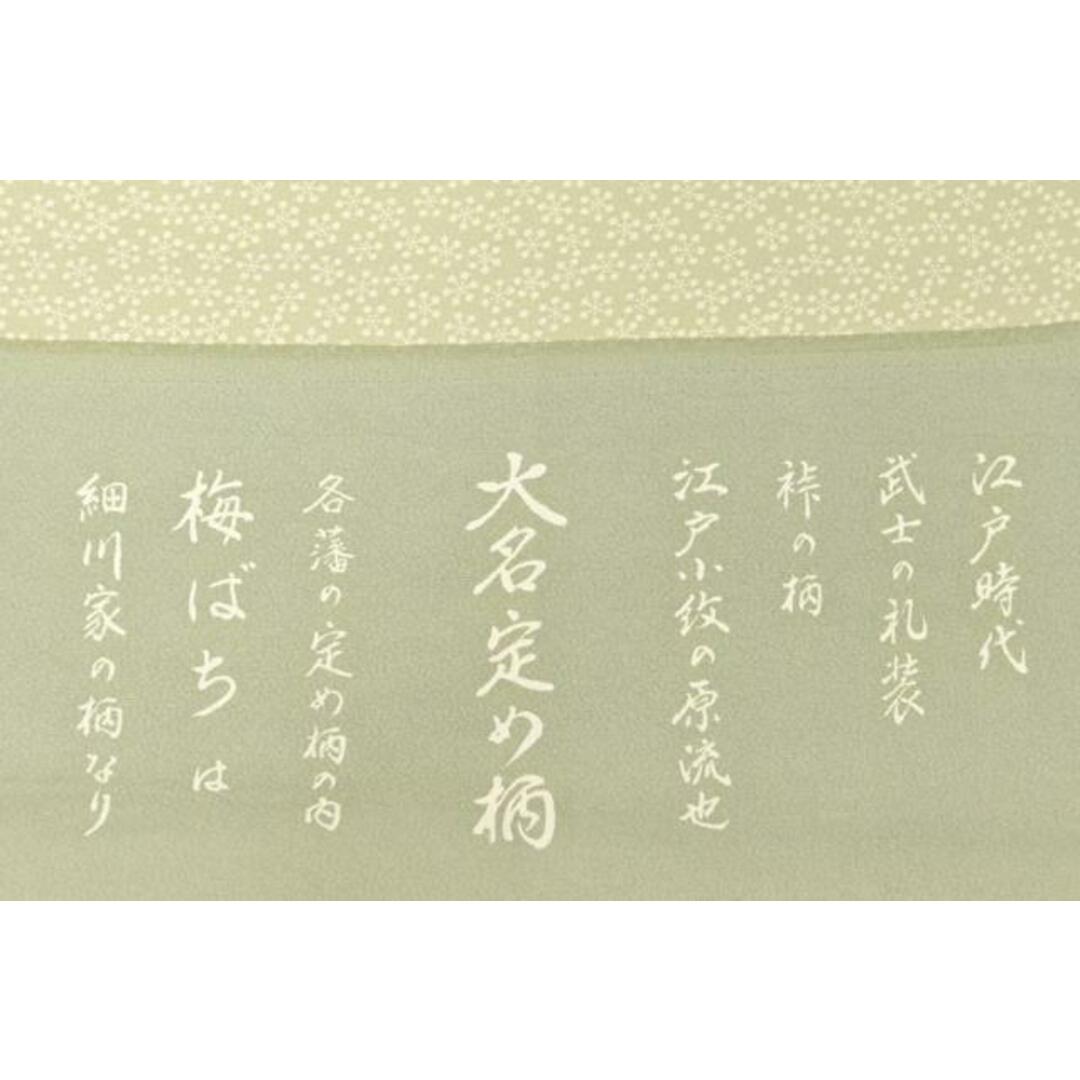 江戸時代
武士の礼装
裃の柄
江戸小紋の原流也
大名定め柄
各藩の定め柄の内
梅ばちは
細川家の柄なり